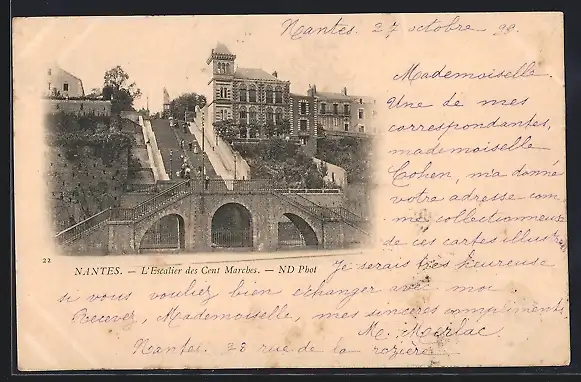 Nantes. 27 octobre 99
Mademoiselle
Une de mes
correspondantes,
mademoiselle
Cohen, m'a donné
votre adresse com
me collectionneuse
de ces cartes illustr
22
NANTES. — L'Escalier des Cent Marches. — ND Phot
Je serais très heureuse
si vous vouliez bien echanger avec moi
Recevez, Mademoiselle, mes sincères compliments
M.
Nantes. 28 rue de la rozière